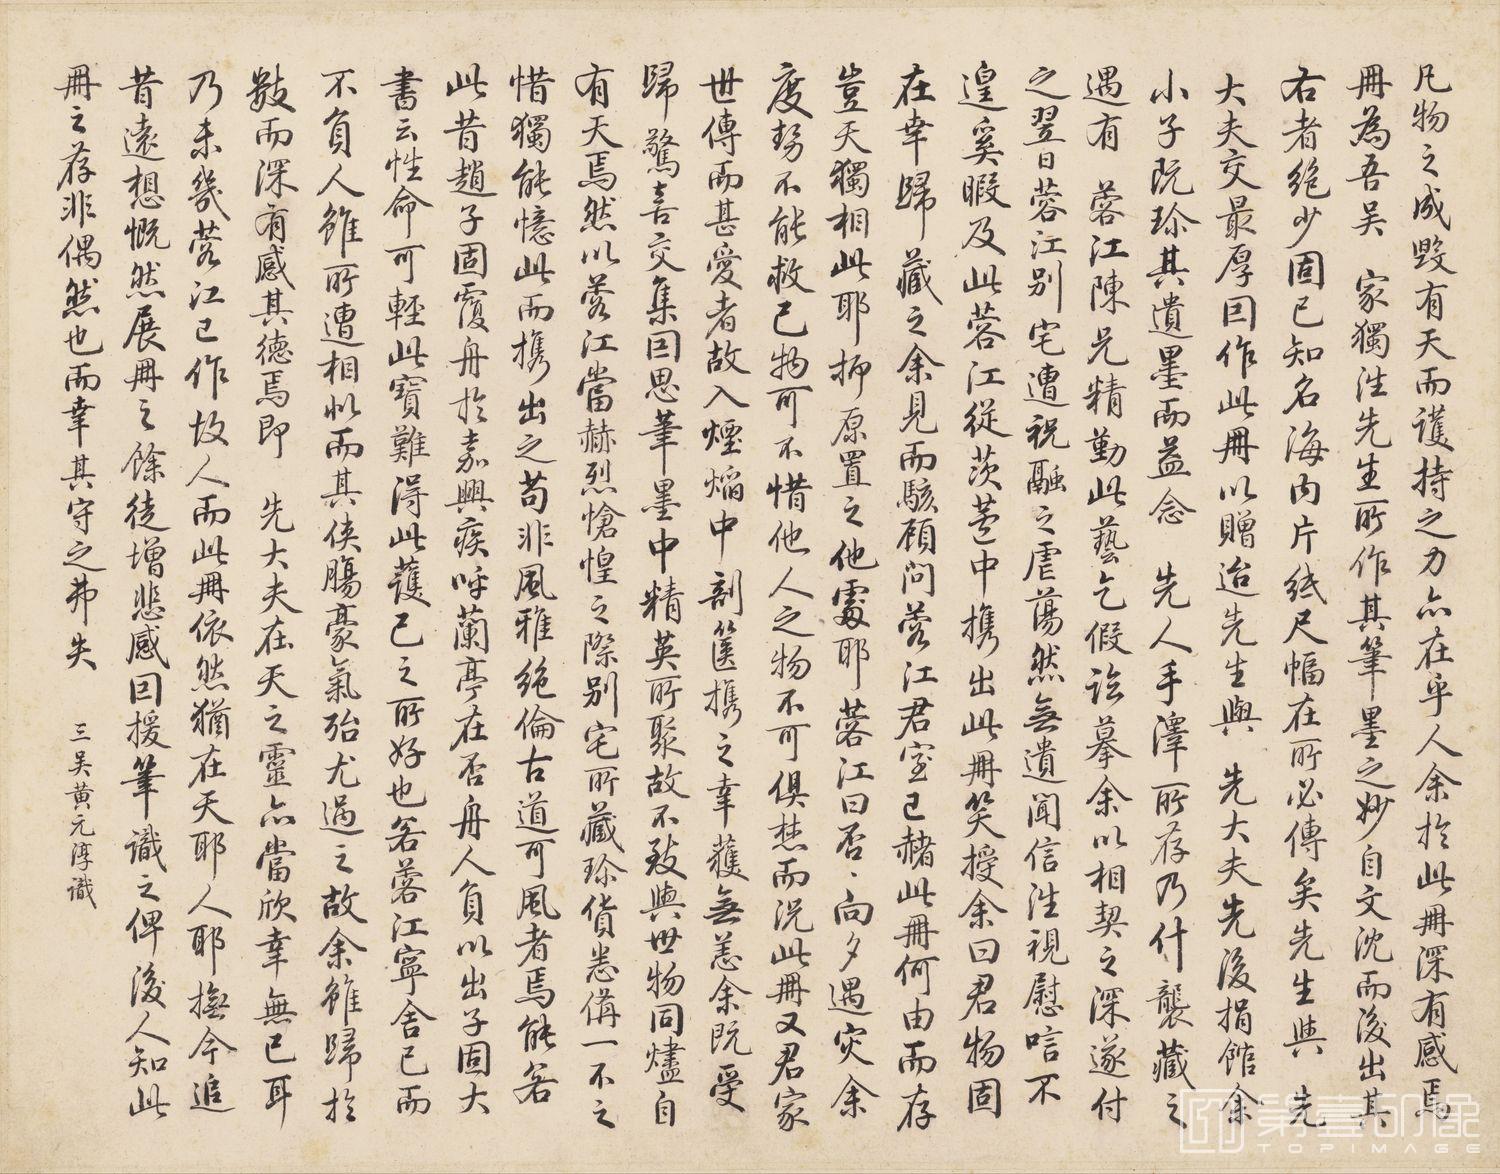 凡物之成毀有天而護持之力亦在乎人余於此冊深有感焉
冊為吾吴 家獨泩先生所作其筆墨之妙自文沈而後出其
右者絶少固已知名海内片紙尺幅在所必傳矣先生與 先
大夫交最厚因作此冊以贈迨先生與 先大夫先後捐館余
小子既珍其遺墨而益念 先人手澤所存乃什襲藏之
遇有 蓉江陳兄精勤此藝乞假臨摹余以相契之深遂付
之翌日蓉江别宅遭祝融之虐蕩然無遺聞信泩視慰唁不
遑奚暇及此蓉江從茨蓬中携出此冊笑授余曰君物固
在幸歸藏之余見而駭顧問蓉江君室已赭此冊何由而存
豈天獨相此耶抑原置之他處耶蓉江曰否〻向夕遇灾余
度勢不能救己物可不惜他人之物不可俱焚而况此冊又君家
世傳而甚愛者故入煙熖中剖篋携之幸獲無恙余既受
歸驚喜交集因思筆墨中精英所聚故不致與世物同燼自
有天焉然以蓉江當赫烈愴惶之際别宅所藏珍貨悉偹一不之
惜獨能憶此而携出之苟非風雅絶倫古道可風者焉能若
此昔趙子固覆舟於嘉興疾呼蘭亭在否舟人負以出子固大
書云性命可輕此寶難得此護己之所好也若蓉江寧舍己而
不負人雖所遭相似而其俠腸豪氣殆尤過之故余雖歸於
數而深有感其德焉即 先大夫在天之靈亦當欣幸無已耳
乃未幾蓉江已作故人而此冊依然猶在天耶人耶撫今追
昔遠想慨然展冊之餘徒增悲感因援筆識之俾後人知此
冊之存非偶然也而幸其守之弗失
三吴黄元淳識
第壹印像
TOPIMAGE